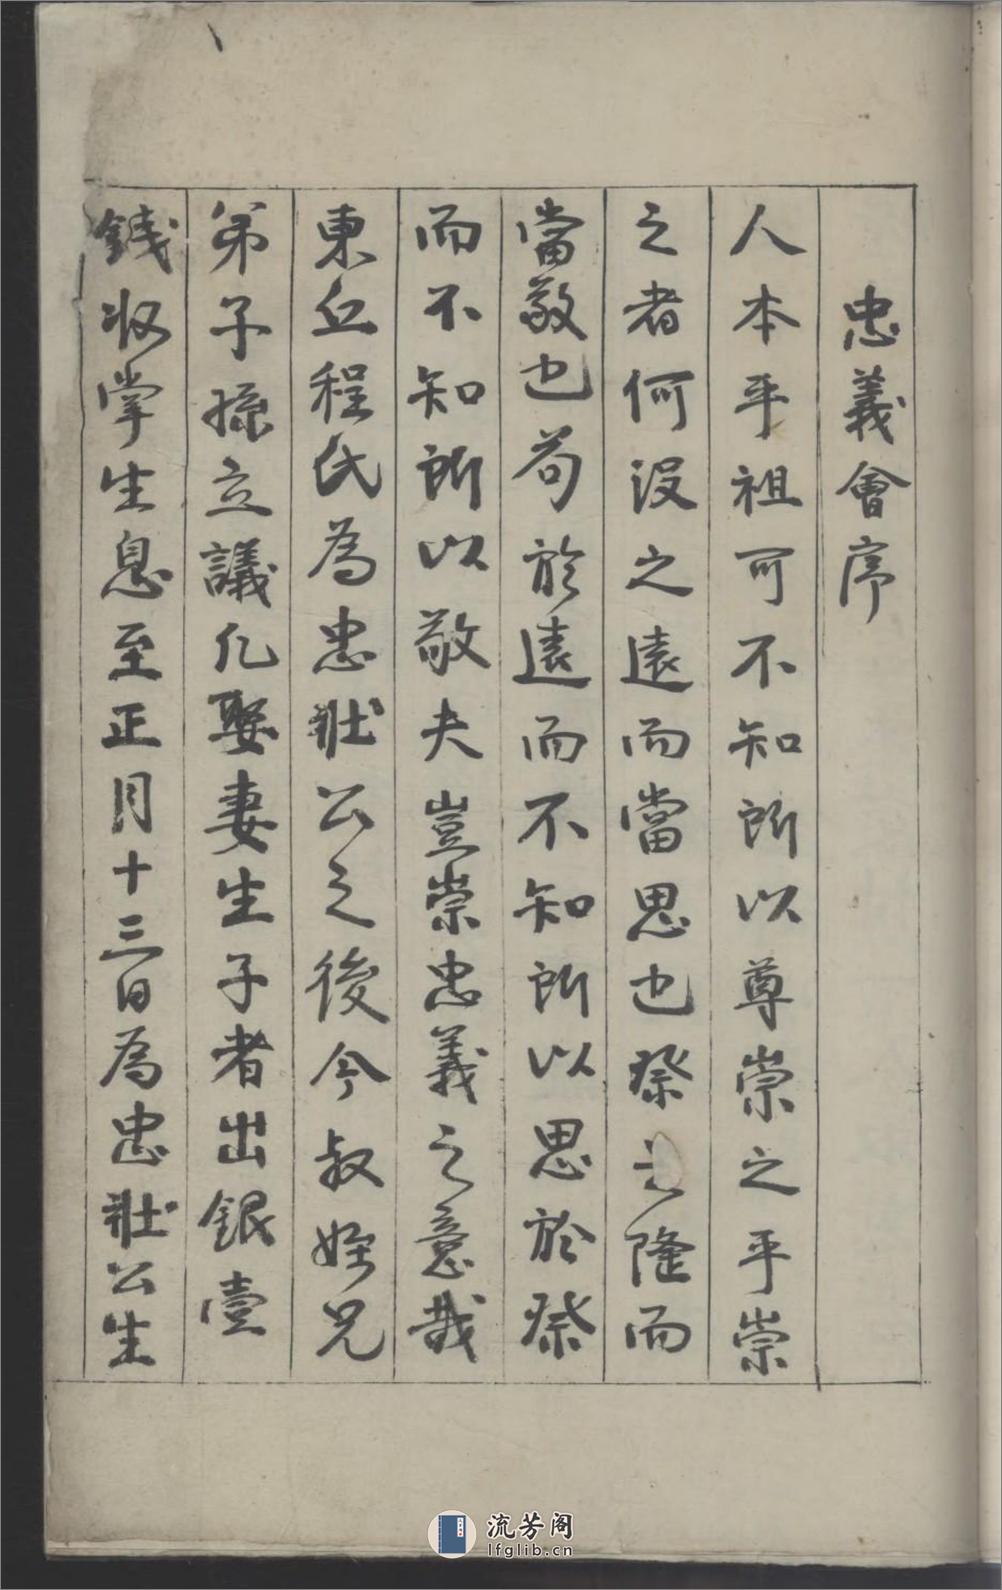 忠義會序
人本乎祖可不知所以尊崇之乎崇
之者何没之遠而當思也祭之隆而
當敬也苟於遠而不知所以思於祭
而不知所以敬夫豈崇忠義之意哉
東丘程氏為忠壯公之後今叔姪兄
弟子孫立議凡娶妻生子者出銀壹
錢收掌生息至正月十三日為忠壯公生
流芳阁
lfglib.cn